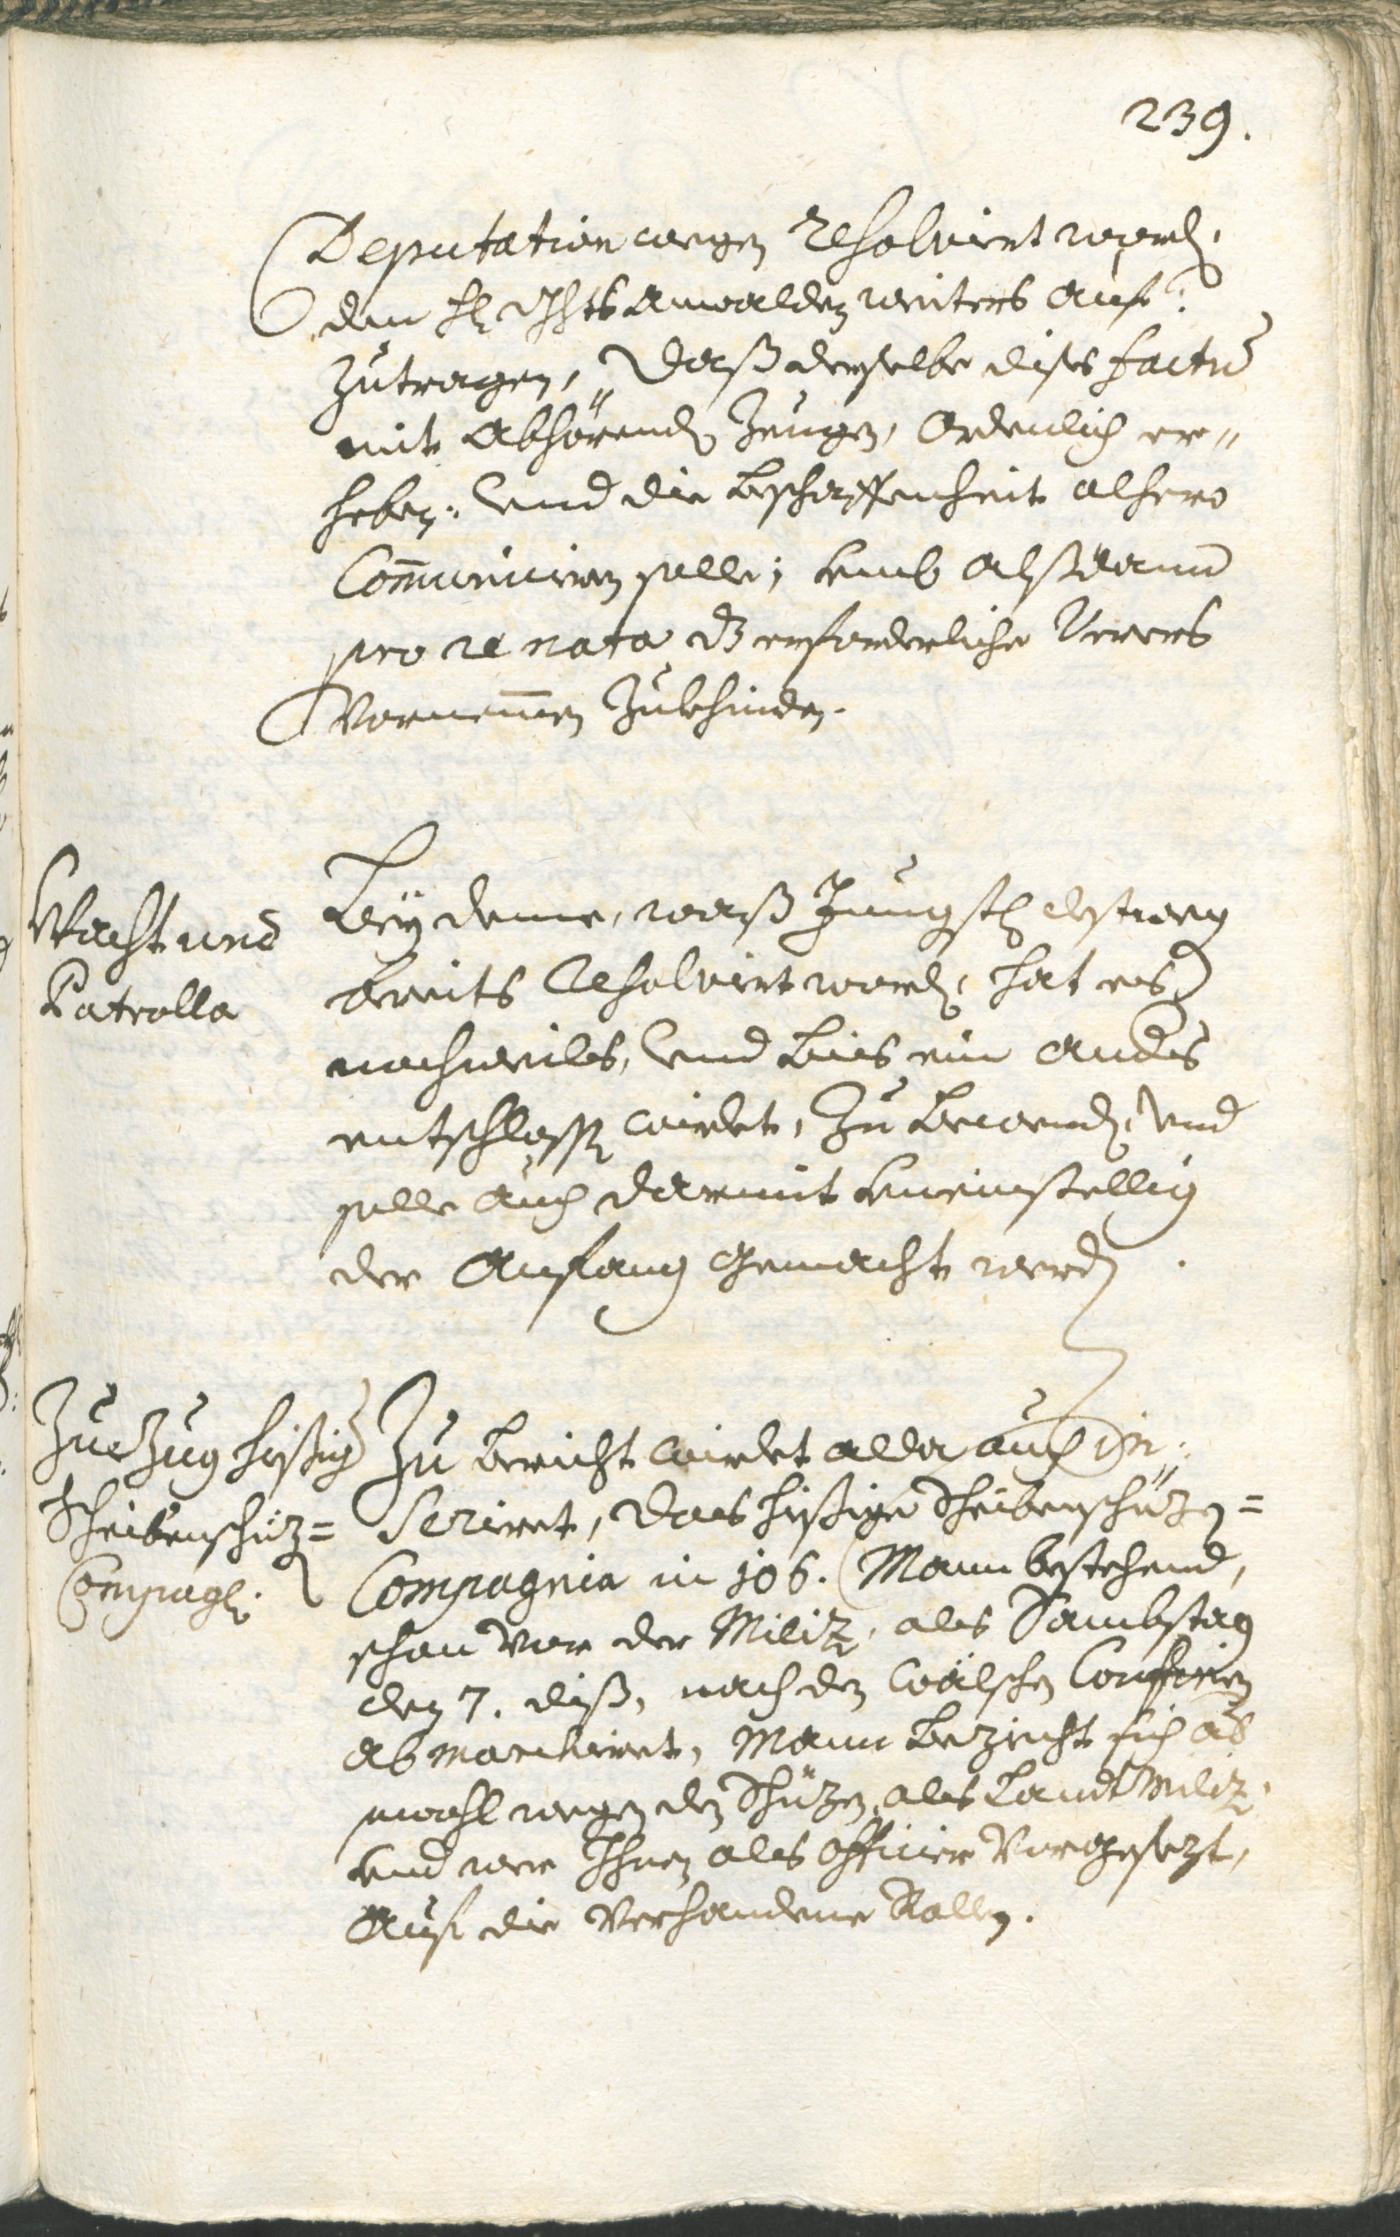 239.
Deputation wegen Resolvirt word,
dem H Ghts Anwalden weiters auf¬
Zutragen, daß derselbe dises factu
mit Abhörend Zeugen, Ordenlich er¬
heben. Und die beschaffenheit alhero
Com̅uniciren solle; umb alßdann
pro re nata dz erforderliche
Vornem̅en Zukhinden.
Wacht und
Patrolla
Bey deme, waß Jungsth destweg
bereits Resolvirt word, hat es
nachmals, Und bis ein anders
entschloss wirdet, Zu bewend, Und
solle auch darmit uneinstellig
der Anfang gemacht werd.
Zuezug hießig
Scheibenschüz=
Compagl.
Zu bericht wirdet alda auch in¬
Serirt, das hießige Scheibenschüzen=
Compagnia in 106. Mann bestehend,
schon vor der Miliz, als Sambstag
den 7. diß, nach den wälschen Confinen
abmarchirt, Mann bezieht sich ob
wohl wegen den Schüzen, als Landt Miliz,
und wer Ihnen als officier Vorgesezt,
Auf die Verhandene Rollen.